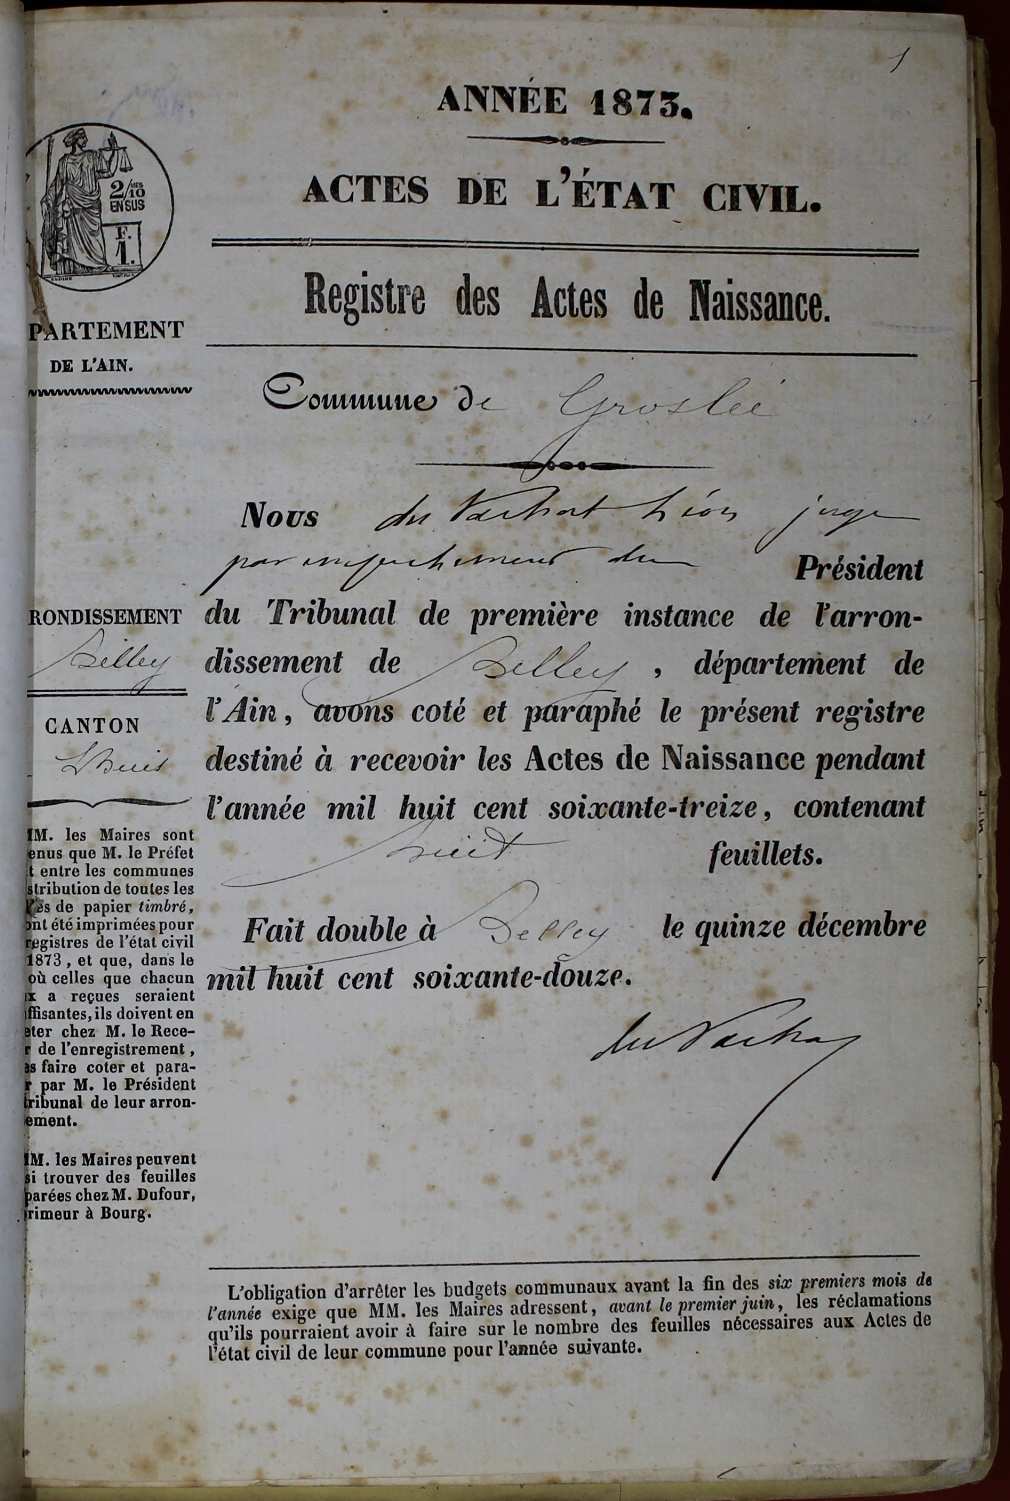 1
ANNÉE 1873.
ACTES DE L'ÉTAT CIVIL.
2/10 MES
EN SUS
F.
1.
PARTEMENT
DE L'AIN.
Registre des Actes de Naissance.
Commune de Groslée
Nous du Vachat Léon juge
par empêchement du Président
du Tribunal de première instance de l'arron-
dissement de Belley, département de
l'Ain, avons coté et paraphé le présent registre
destiné à recevoir les Actes de Naissance pendant
l'année mil huit cent soixante-treize, contenant
huit feuillets.
Fait double à Belley le quinze décembre
mil huit cent soixante-douze.
du Vachat
RONDISSEMENT
Belley
CANTON
Lhuis
MM. les Maires sont
enus que M. le Préfet
t entre les communes
stribution de toutes les
es de papier timbré,
ont été imprimées pour
registres de l'état civil
1873, et que, dans le
où celles que chacun
x a reçues seraient
ffisantes, ils doivent en
eter chez M. le Rece-
r de l'enregistrement,
es faire coter et para-
r par M. le Président
tribunal de leur arron-
ement.
MM. les Maires peuvent
si trouver des feuilles
parées chez M. Dufour,
rimeur à Bourg.
L'obligation d'arrêter les budgets communaux avant la fin des six premiers mois de
l'année exige que MM. les Maires adressent, avant le premier juin, les réclamations
qu'ils pourraient avoir à faire sur le nombre des feuilles nécessaires aux Actes de
l'état civil de leur commune pour l'année suivante.